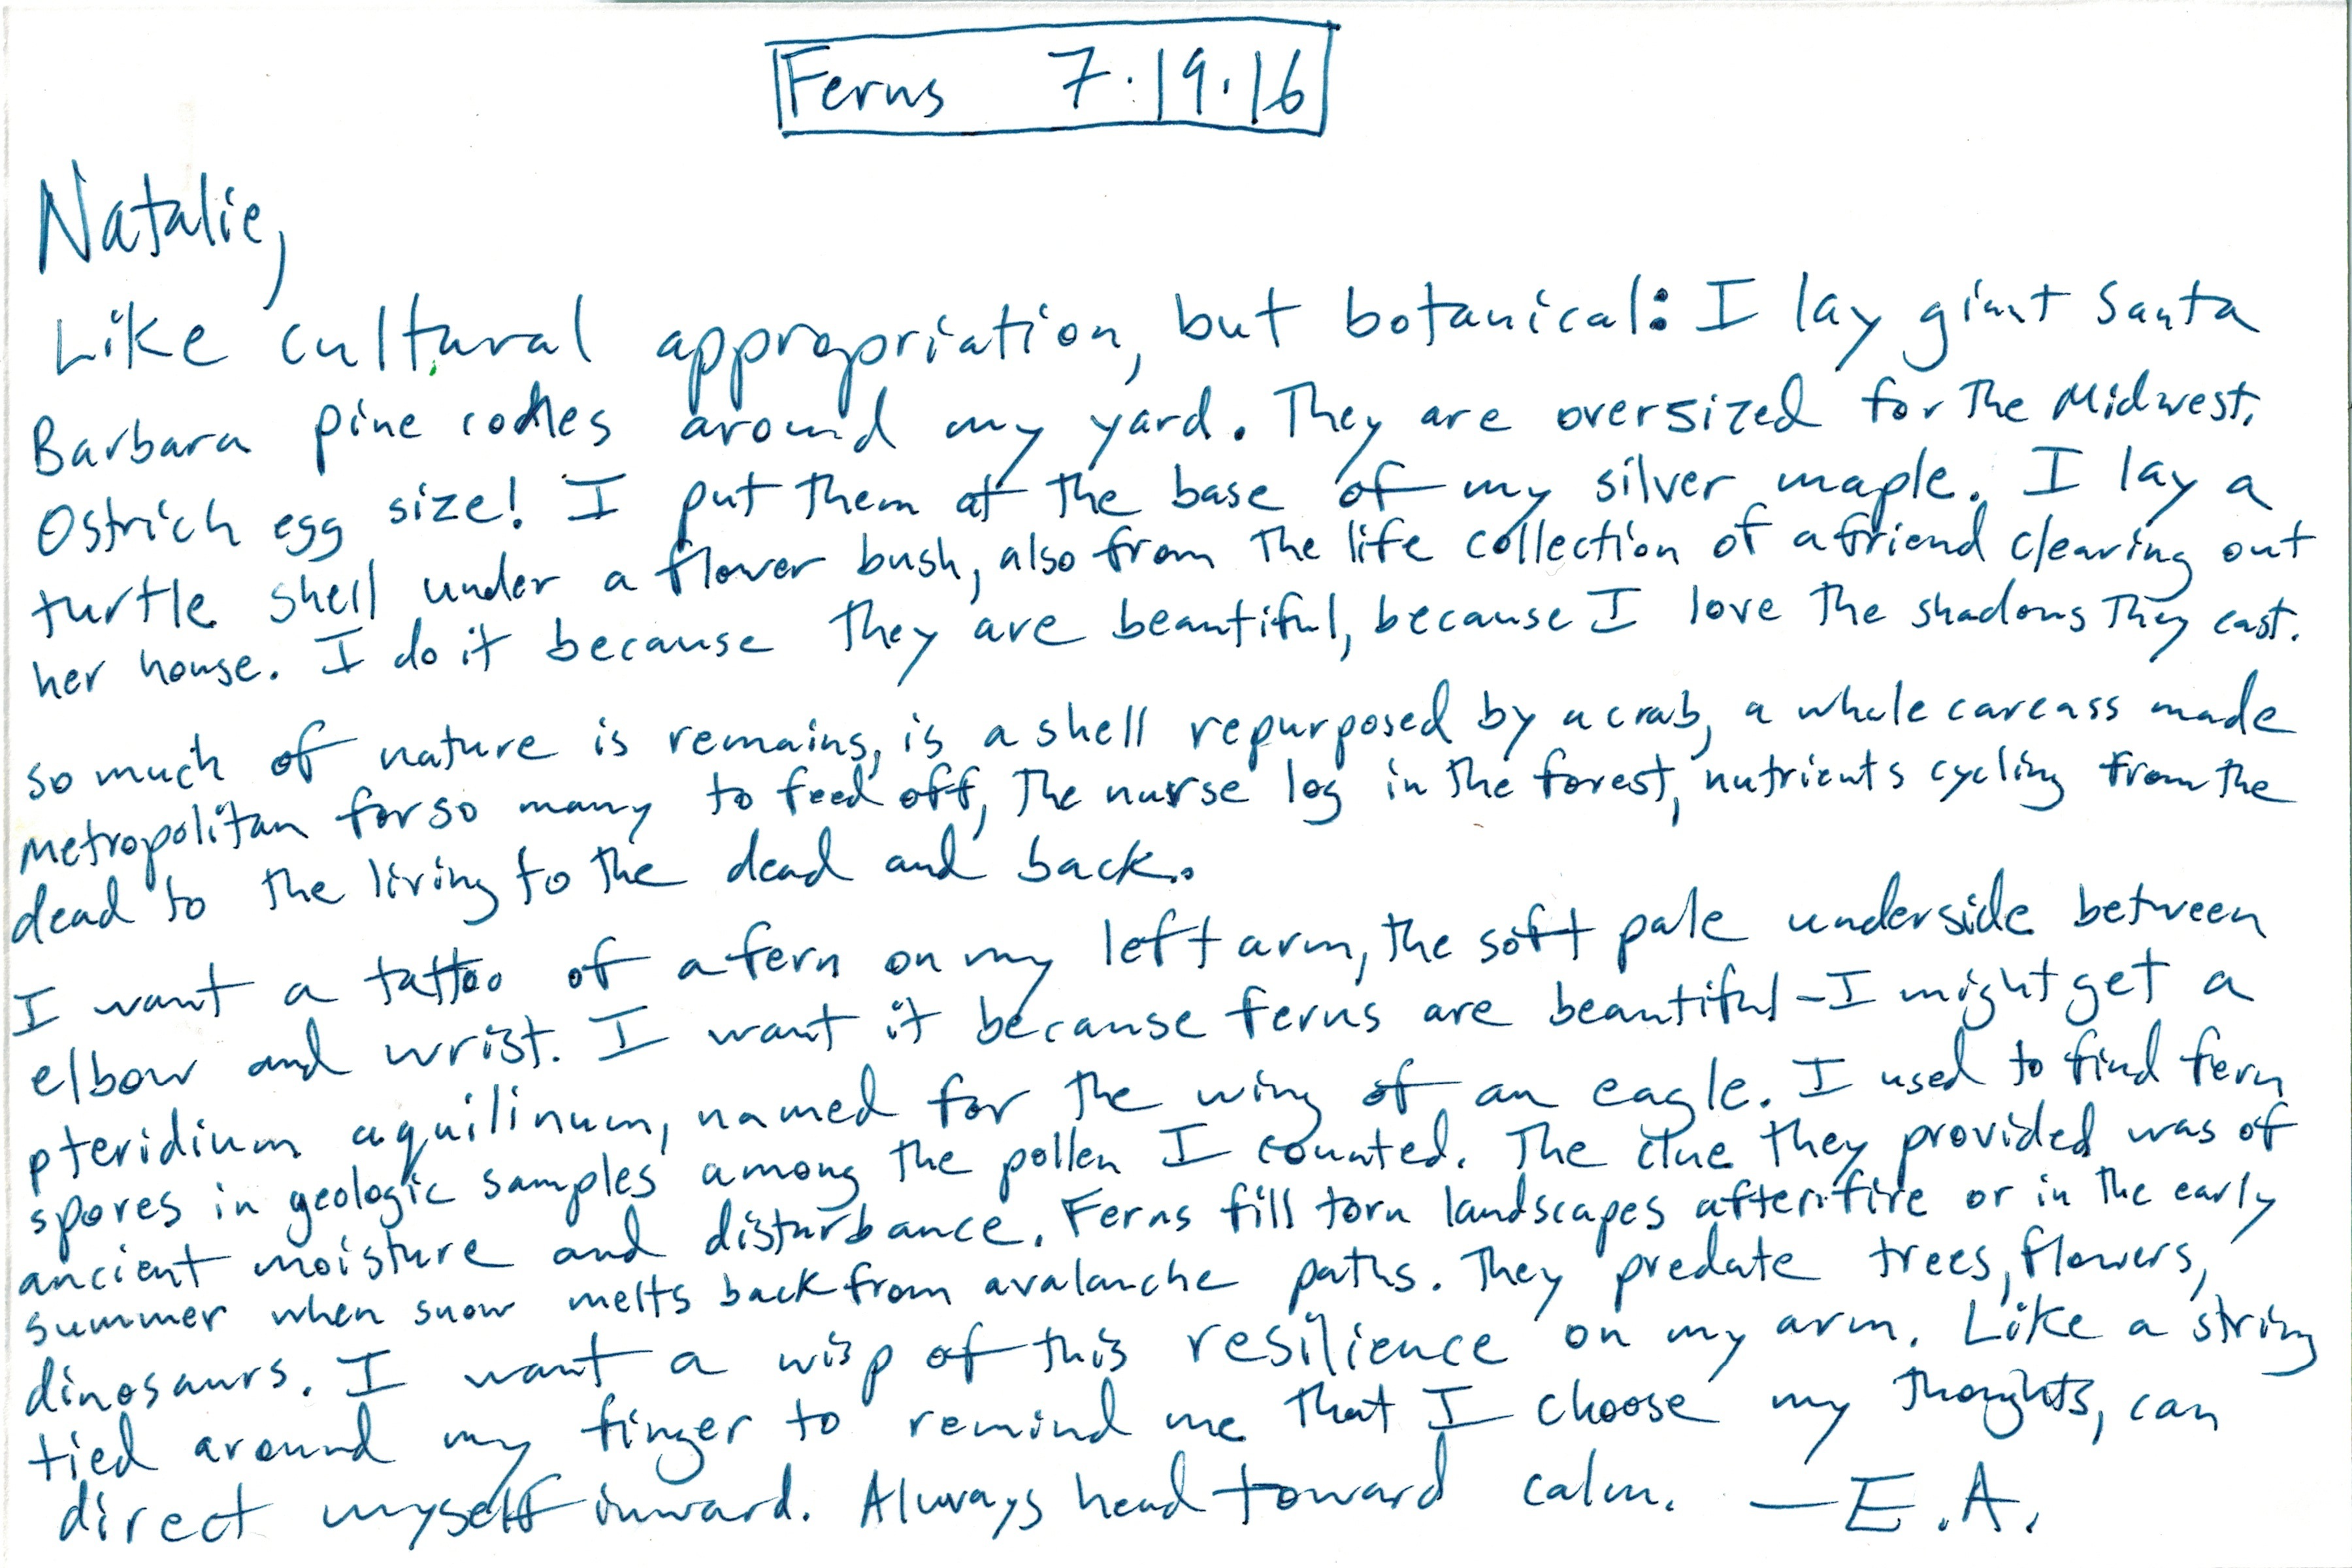 Ferns 7.19.16
Natalie,
Like cultural appropriation, but botanical: I lay giant Santa
Barbara pine cones around my yard. They are oversized for the Midwest.
Ostrich egg size! I put them at the base of my silver maple. I lay a
turtle shell under a flower bush, also from the life collection of a friend clearing out
her house. I do it because they are beautiful, because I love the shadows they cast.
so much of nature is remains, is a shell repurposed by a crab, a whale carcass made
metropolitan for so many to feed off, the nurse log in the forest, nutrients cycling from the
dead to the living to the dead and back.
I want a tattoo of a fern on my left arm, the soft pale underside between
elbow and wrist. I want it because ferns are beautiful - I might get a
pteridium aquilinum, named for the wing of an eagle. I used to find fern
spores in geologic samples among the pollen I counted. The clue they provided was of
ancient moisture and disturbance. Ferns fill torn landscapes after fire or in the early
summer when snow melts back from avalanche paths. They predate trees, flowers,
dinosaurs. I want a wisp of this resilience on my arm. Like a string
tied around my finger to remind me that I choose my thoughts, can
direct myself inward. Always head toward calm. — E.A.